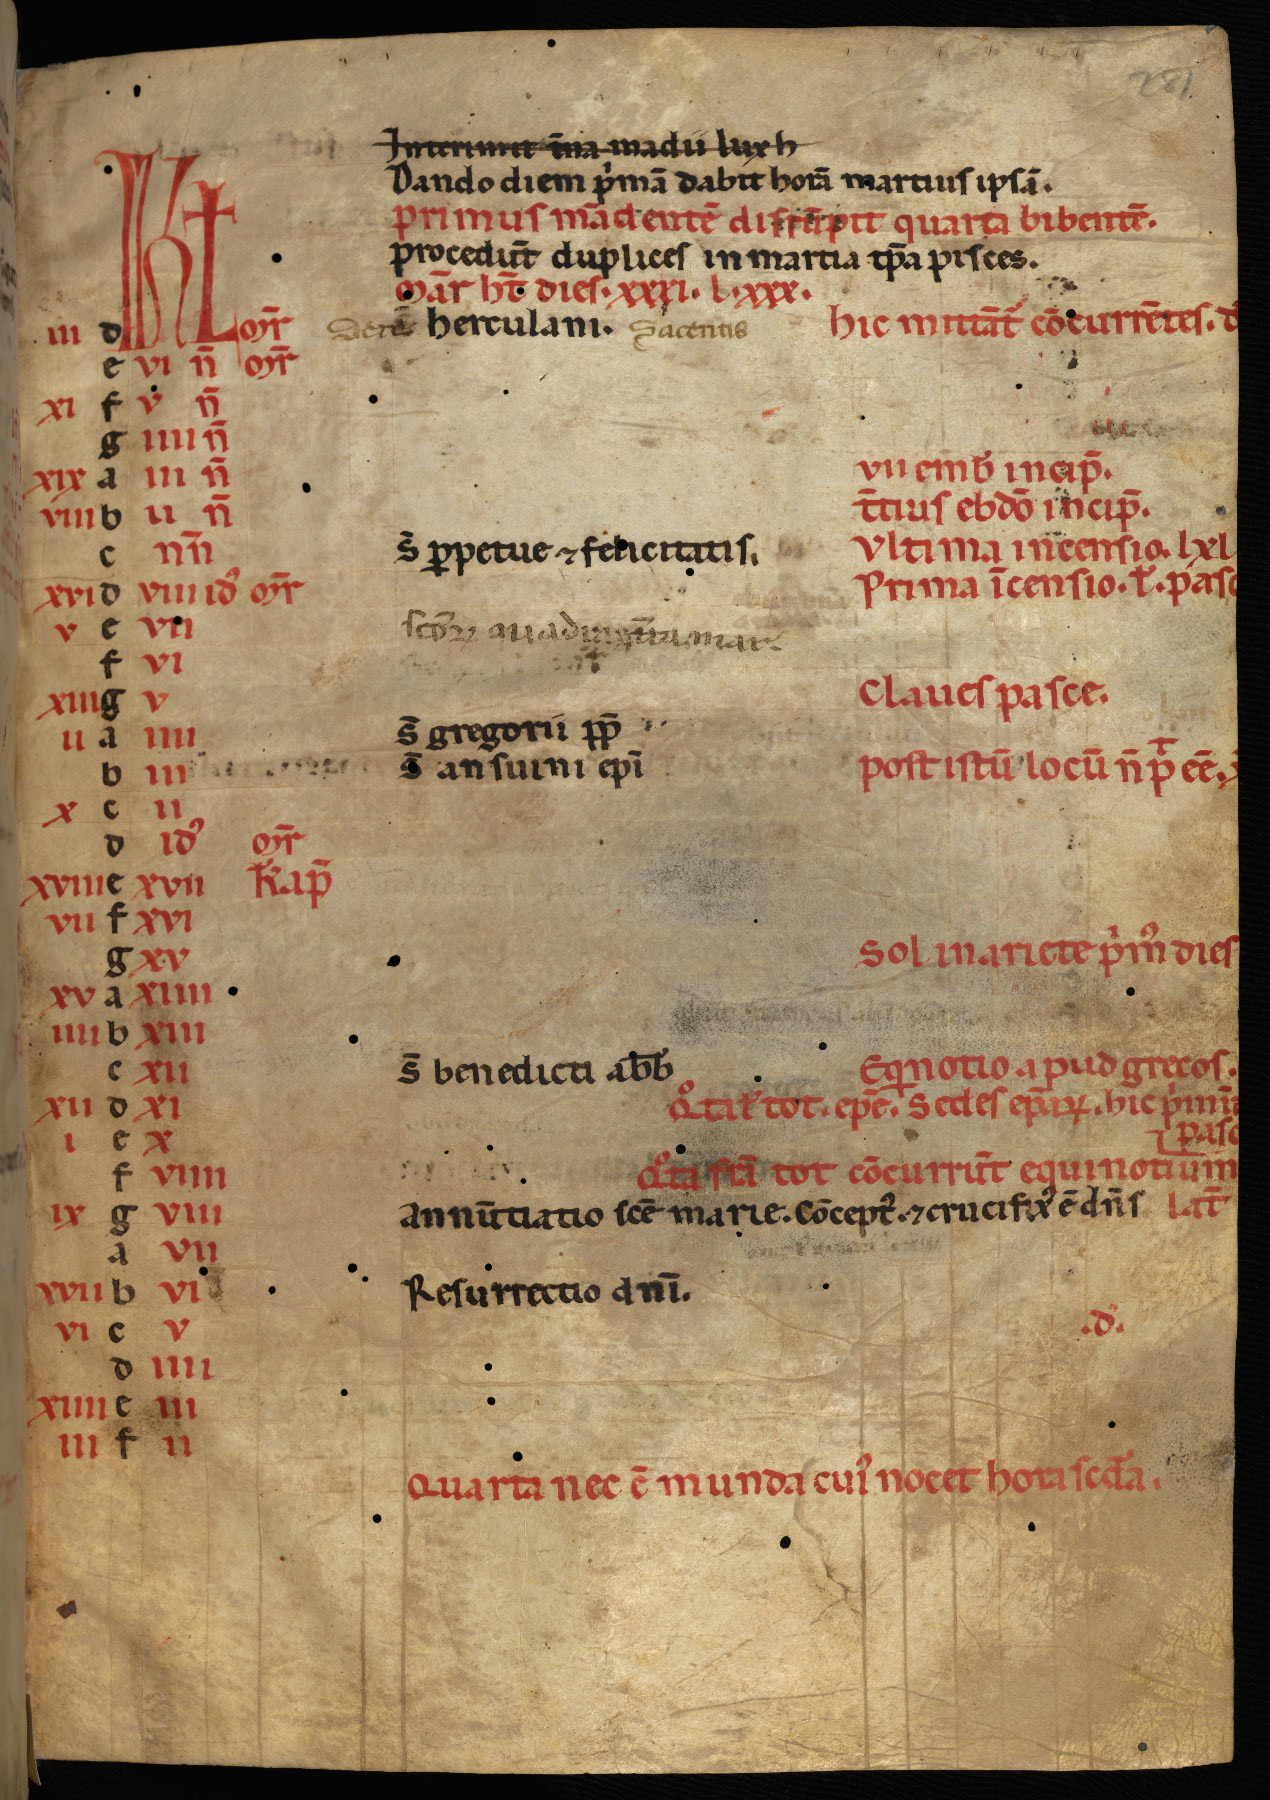 281
Interimit t̄na madii lux h
Dando diem p̍mā dabit horā martius ipsā.
Primus māclentē disrūpit quarta bibentē.
procedūt duplices in martia tp̄a pisces.
Mār ht̄ dies. xxxi. l. xxx.
KL
iii d Mr̄ herculani. Sacentis hic mutāt cōcurrētes.
e vi n̄ Mr̄
xi f v n̄
g iiii n̄
xix a iii n̄ vii emb incip̄.
viii b ii n̄ t̄tius ebdō incip̄.
c nn̄ s̄ ꝑpetue ⁊ felicitatis. Vltima incensio. lxl
xvi d viii id᾽ Mr̄ Prima īcensio. l᾽. pasc
v e vii scōꝝ quadraginta mar.
f vi
xiii g v Claues pasce.
ii a iiii s̄ gregorii pp̄
b iii s̄ ansuini ep̄i post istū locū n̄ p̄ eē.
x c ii
d id᾽ Mr̄
xviii e xvii k̄ ap̄
vii f xvi
g xv Sol in ariete p̍m᾽ dies
xv a xiiii
iiii b xiii
c xii s̄ benedicti abb̄ Eq̄notio apud grecos.
xii d xi tot. epē. Sedes epāꝝ. hic p̍mū
pasc
i e x
f viiii tot cōcurrūt equinotium
ix g viii annūtiatio scē marie. cōcept᾽. ⁊ crucifix᾽ ē dn̄s lat̄
a vii
xvii b vi Resurrectio dn̄i.
vi c v .d᾽.
d iiii
xiiii e iii
iii f ii
Quarta nec ē munda cui᾽ nocet hora scd̄a.